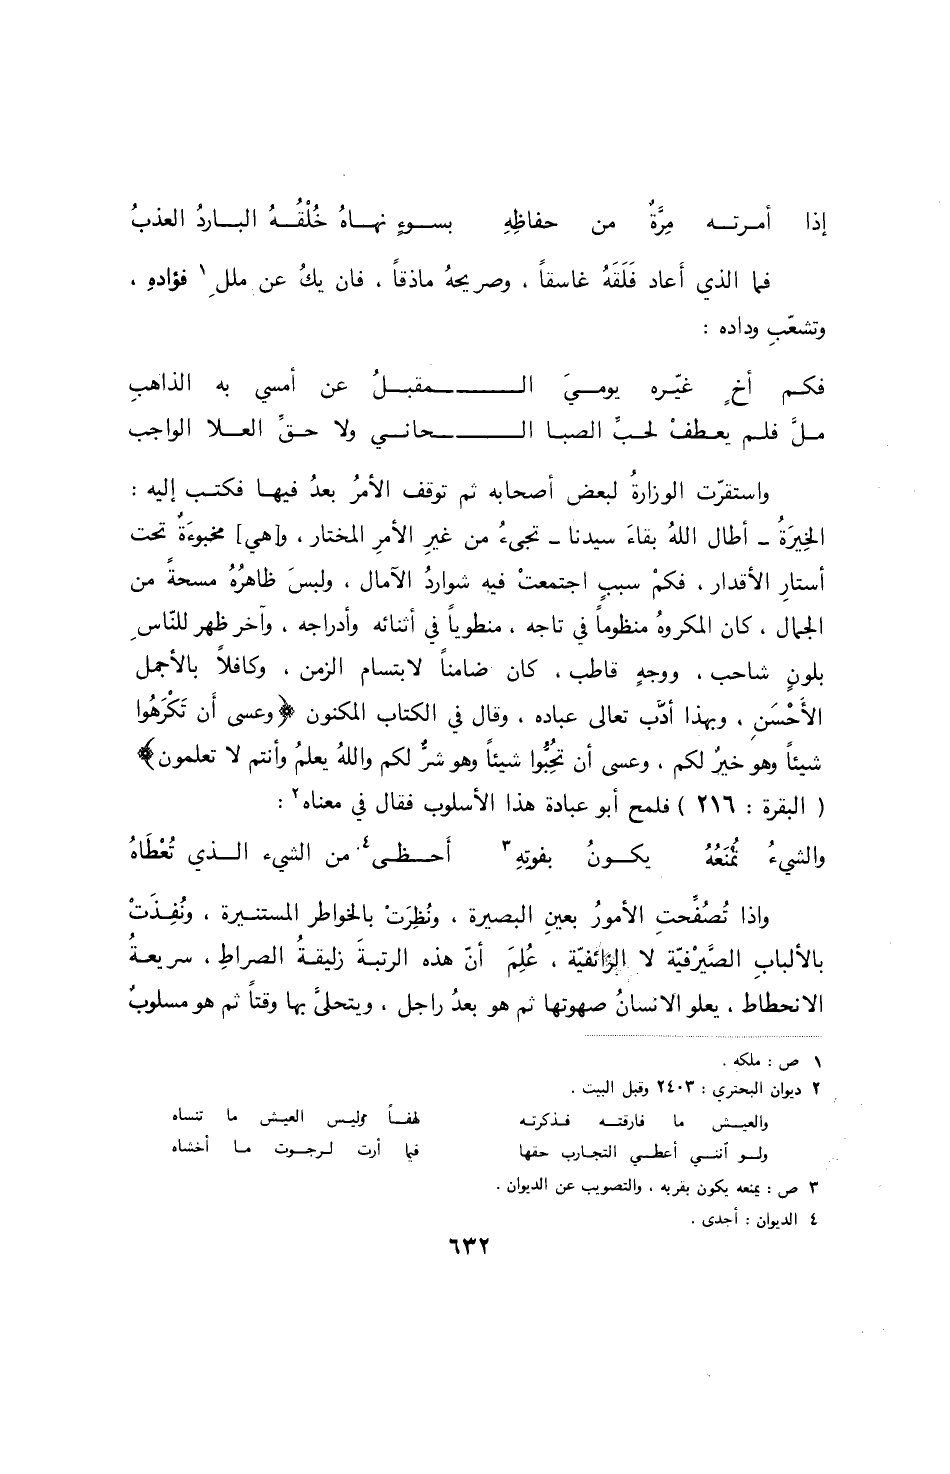 إذا أمرتــه مِرَّةٌ من حفاظِهِ بســوءٍ نهــاهُ خُلْقُــهُ البــاردُ العذبُ
فما الذي أَعاد فَلَقَهُ غاسقاً ، وصريحهُ ماذقاً ، فان يكُ عن مللِ ١ فؤادهِ ،
وتشعّبِ وداده :
فكـم أخٍ غيّـره يومـيَ الـــــــمقبــلُ عن أمسي به الذاهبِ
مـلَّ فلـم يعـطفْ لحبِّ الصبـا الـــــــحانـي ولا حـقِّ العـلا الواجب
واستقرّت الوزارةُ لبعض أصحابه ثم توقف الأمرُ بعدُ فيهـا فكتـب إليه :
الخِيرَةُ ـ أطال اللهُ بقاءَ سيدنا ـ تجيءُ من غيرِ الأمرِ المختار ، و[هي] مخبوءَةٌ تحت
أستارِ الأقدار ، فكمْ سببٍ اجتمعتْ فيه شواردُ الآمال ، ولبسَ ظاهرُهُ مسحةً من
الجمال ، كان المكروهُ منظوماً في تاجه ، منطوياً في أثنائه وأدراجه ، وآخر ظهر للنّاسِ
بلونٍ شاحب ، ووجهٍ قاطب ، كان ضامناً لابتسام الزمن ، وكافلاً بالأجمل
الأَحْسَنِ ، وبهذا أدَّب تعالى عباده ، وقال في الكتاب المكنون ﴿وعسى أن تَكْرَهُوا
شيئاً وهو خيرٌ لكم ، وعسى أن تُحِبُّوا شيئاً وهو شرٌّ لكم واللهُ يعلمُ وأنتم لا تعلمون﴾
( البقرة : ٢١٦ ) فلمح أبو عبادة هذا الأسلوب فقال في معناه٢ :
والشيءُ تُمْنَعُهُ يكــونُ بفوتِهِ٣ أَحــظى٤ من الشيء الــذي تُعْطَاهُ
واذا تُصُفِّحتِ الأمورُ بعينِ البصيرة ، ونُظِرَتْ بالخواطر المستنيرة ، ونُفِـذَتْ
بالألبابِ الصَّيْرفيّة لا الزائفيّة ، عُلِمَ أنّ هذه الرتبةَ زليقةُ الصراطِ ، سريعـةُ
الانحطاط ، يعلو الانسانُ صهوتها ثم هو بعدُ راجل ، ويتحلىَّ بها وقتاً ثم هو مسلوبٌ
١ ص : ملكه .
٢ ديوان البحتري : ٢٤٠٣ وقبل البيت .
والعيـش ما فارقتـه فـذكرتـه لهفــاً وليس العيـش ما تنساه
ولـو أننـي أعطـي التجارب حقها فيما أرت لـرجـوت مـا أخشاه
٣ ص : يمنعه يكون بقربه ، والتصويب عن الديوان .
٤ الديوان : أجدى .
٦٣٢